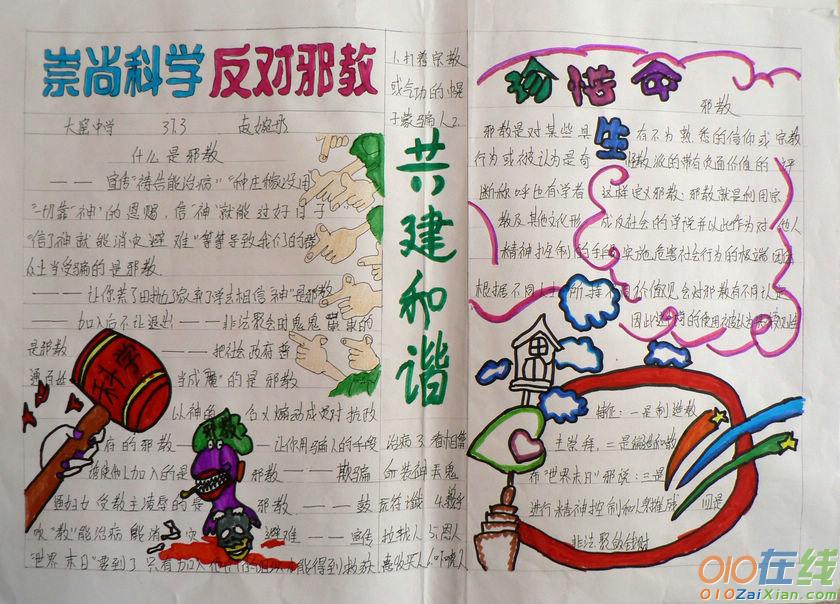 崇尚科学 反对邪教
大窑中学 37.3
什么是邪教
—— 宣传"祷告能治病""种庄稼没用
"一切靠'神'的恩赐,信'神'就能过好日子"
"信了神就能消灾避难"等等导致我们的群
众上当受骗的是邪教.
—— 让你荒了田抛了家弃了学去相信"神"是邪教
—— 加入后不让退出 —— 非法聚会由鬼鬼祟祟的
是邪教 —— 把社会政府普
通百姓 当成魔"的是邪教
—— 以神的名义煽动成员对抗政
府的邪教 —— 让你用骗人的手段
加入的是邪教 —— 欺骗
妇女受教主凌辱的是邪教 —— 鼓
吹"教"能治病能消灾避难 —— 宣传
"世界末日"要到了只有加入 能得到救赎
科学
邪教
1.打着宗教
或气功的幌
子蒙骗人2.
治病3.
装神弄鬼
4.
拉拢人5.
共建和谐
珍惜生命
邪教
邪教是对某些具 在不为熟悉的信仰或宗教
行为或被认为是奇怪教派的带有负面价值的评
断称呼也有学者这样定义邪教:邪教就是利用宗
教及其他文化形 成反社会的学说并以此作为对他人
精神控制的手段实施危害社会行为的极端团体
根据不同人士所持不同价值观会对邪教有不同认定
因此这个词的使用被认为
特征:一是制造教
主崇拜,二是编造和散
布"世界末日"邪说:三是
进行精神控制和人身摧残 四是
非法聚敛钱财
010在线
010ZaiXian.com